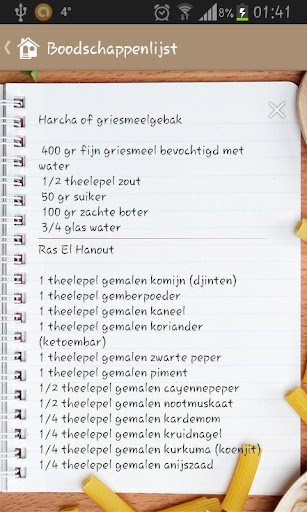 4° 8% 01:41
Boodschappenlijst
Harcha of griesmeelgebak
400 gr fijn griesmeel bevochtigd met
water
1/2 theelepel zout
50 gr suiker
100 gr zachte boter
3/4 glas water
Ras El Hanout
1 theelepel gemalen komijn (djinten)
1 theelepel gemberpoeder
1 theelepel gemalen kaneel
1 theelepel gemalen koriander
(ketoembar)
1 theelepel gemalen zwarte peper
1 theelepel gemalen piment
1/2 theelepel gemalen cayennepeper
1/2 theelepel gemalen nootmuskaat
1/4 theelepel gemalen kardemom
1/4 theelepel gemalen kruidnagel
1/4 theelepel gemalen kurkuma (koenjit)
1/4 theelepel gemalen anijszaad